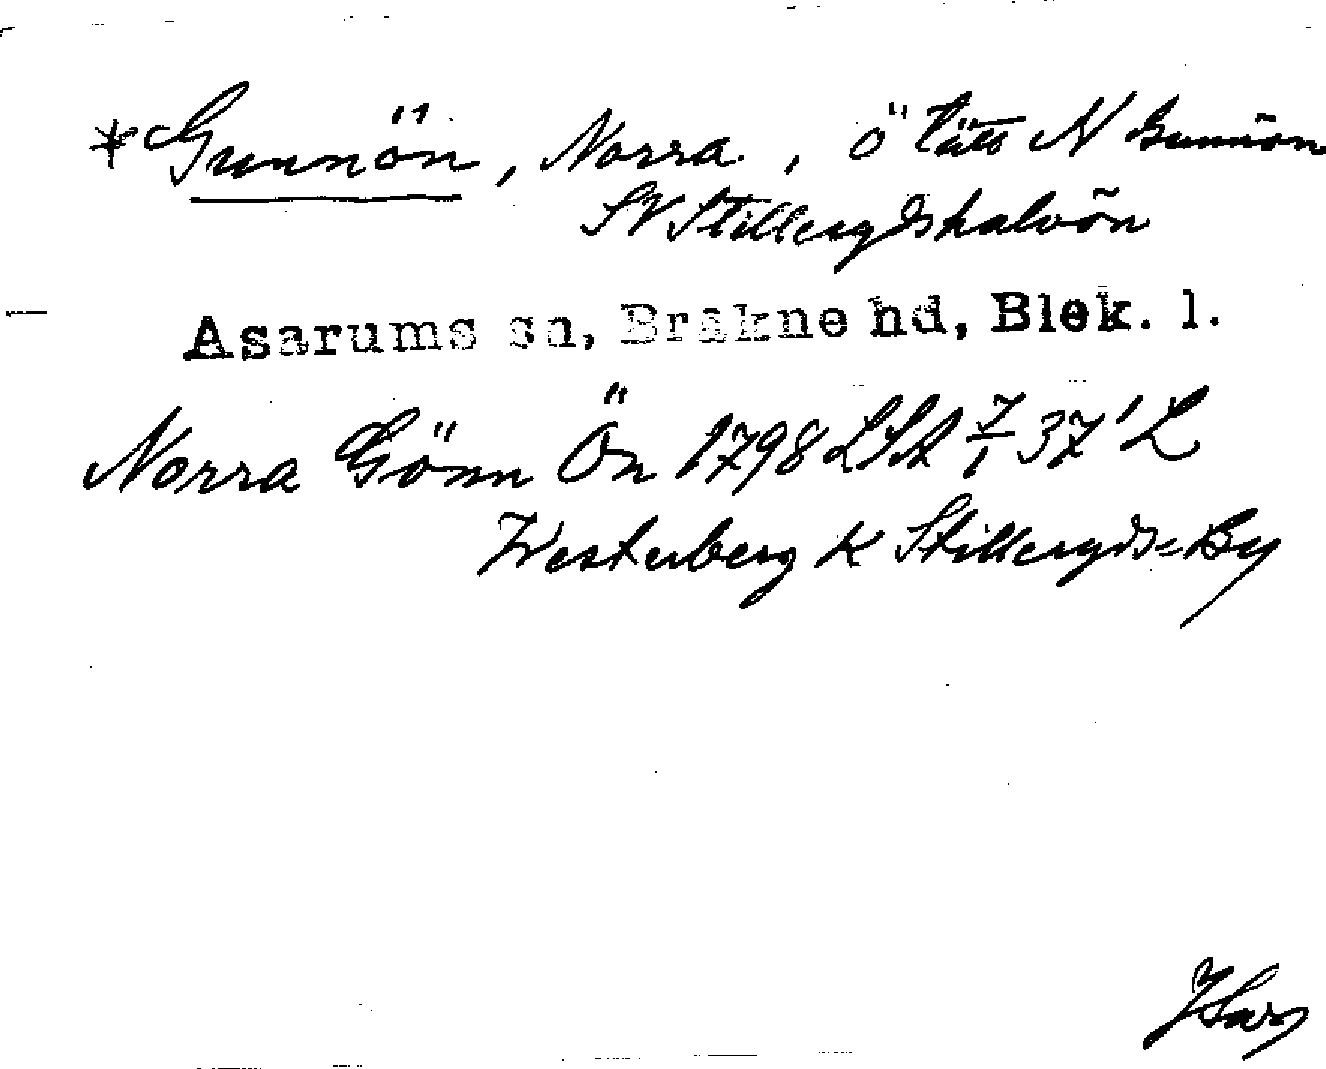 * Gunnön, Norra, ö tätt N Gunnön
SV Stillerydshalvön
Asarums sn, Bräkne hd, Blek. l.
Norra Gönn Ön 1798 LSA 7/1 37' L
Westerberg K Stilleryds=By